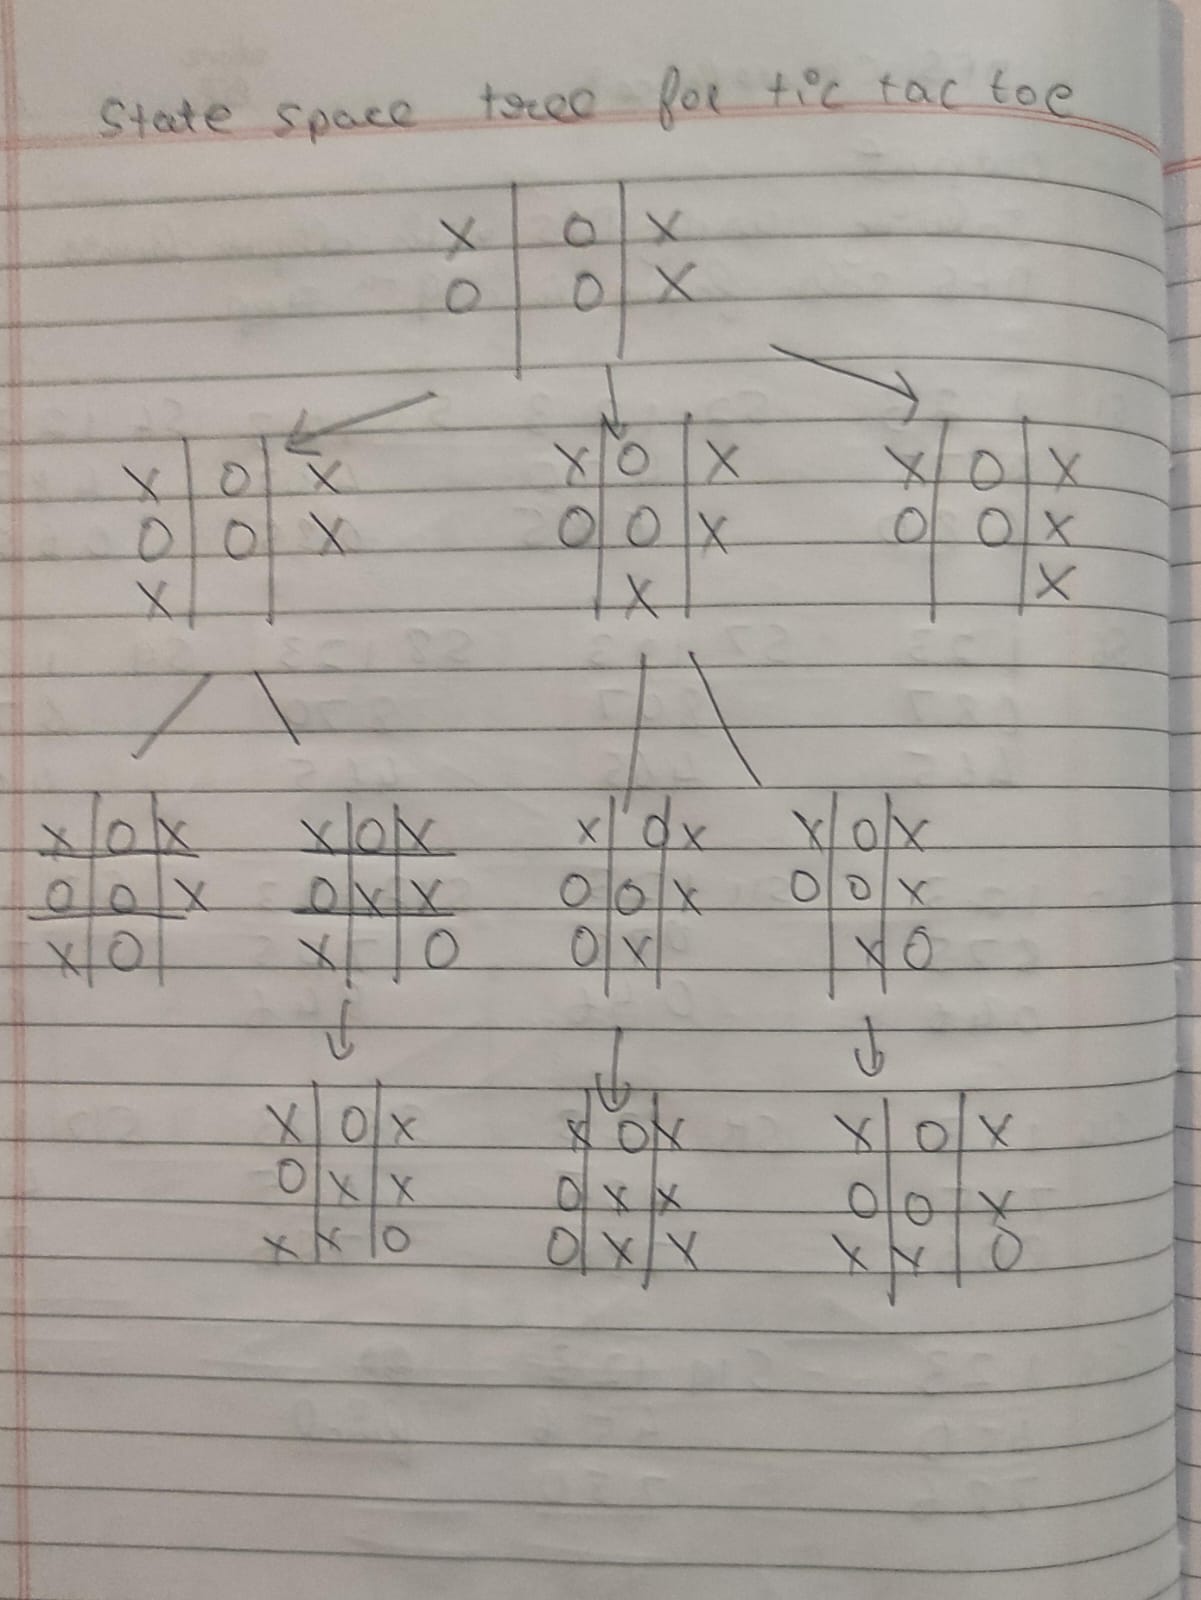 State space tree for tic tac toe
X O X
O O X
X O X X O X X O X
O O X O O X O O X
X X X
X O X X O X X O X X O X
O O X O X X O O X O O X
X O X O O X X O
X O X X O X X O X
O X X O X X O O X
X X O O X X X X O